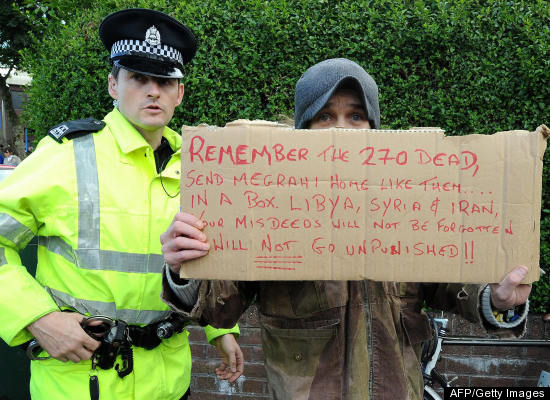 REMEMBER THE 270 DEAD,
SEND MEGRAHI HOME LIKE THEM....
IN A BOX. LIBYA, SYRIA & IRAN,
YOUR MISDEEDS WILL NOT BE FORGOTTEN
WILL NOT GO UNPUNISHED!!
AFP/Getty Images